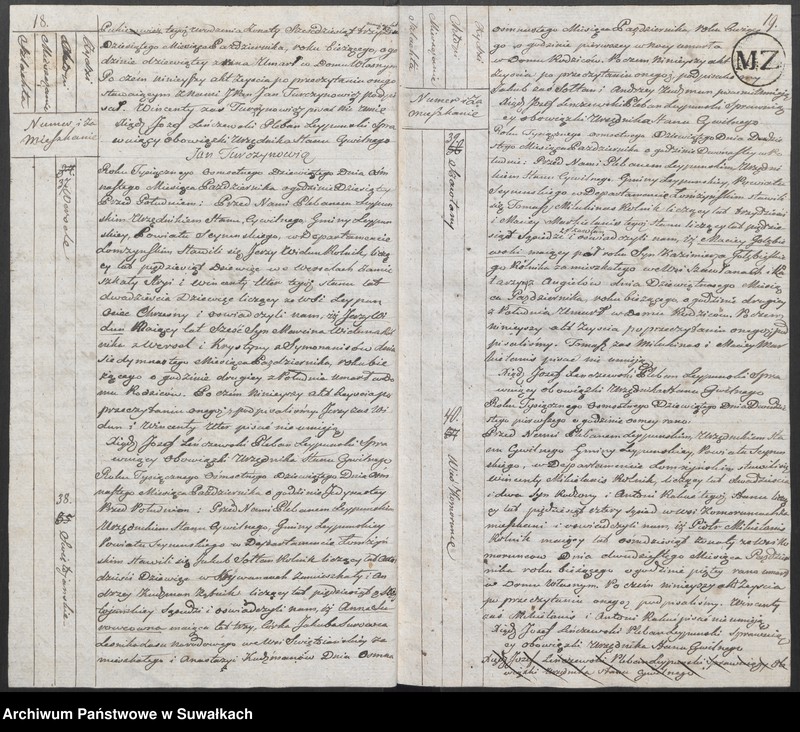 18.
Szlachta
Mieszczanie
Chłopi
Żydzi
Numer i Za
Mieszkanie
tegoż Urodzenia Zwoty Szesćdziesiąt trzy Dnia
Dziesiątego Miesiąca Października, roku bieżącego, o go
dzinie dziewiątey z rana Umarł w Domu Własnym
Po czem ninieyszy Akt zeyścia po przeczytaniu onego
stawaiącym z Nami JPan Jan Turczynowicz podpi
sał Wincenty zaś Turczynowicz pisać nie umie
Xiądz Jozef Leńczewski Pleban Leypunski Spra
wuiący obowiązki Urzędnika Stanu Cywilnego
Jan Turczynowicz
Wersele
Roku Tysiącznego Osmsetnego Dziewiątego Dnia Osm
nastego Miesiąca Października o godzinie Dziewiątey
Przed Południem: Przed Nami Plebanem Leypun
skim Urzędnikiem Stanu Cywilnego Gminy Leypun
skiey, Powiatu Seynenskiego, w Departamencie
Łomżynskim Stawili się Jerzy Widun Rolnik, liczą
cy lat pięćdziesiąt Dziewięć we w Werselach zamie
szkały Stryi i Wincenty Uter tegoż stanu lat
dwadzieścia Dziewięć liczący ze Wsi Leypun
Ociec Chrzesny i oświadczyli nam, iż Jerzy Wi
dun maiący lat Szesć Syn Marcina Widuna Rol
nika z Wersel i Krystyny z Symonaisów dnia
Siedymnastego Miesiąca Października, roku bie
żącego o godzinie drugiey z Południa umarł w Do
mu Rodziców. Po czem ninieyszy Akt zeyścia po
przeczytaniu onego podpisaliśmy Jerzy zaś Wi
dun i Wincenty Uter pisać nie umieią
Xiądz Jozef Leńczewski Pleban Leypunski Spra
wuiący Obowiązki Urzędnika Stanu Cywilnego
38.
Swiętojanskie
Roku Tysiącznego Osmsetnego Dziewiątego Dnia Osm
nastego Miesiąca Października o godzinie Jedynastey
Przed Południem: Przed Nami Plebanem Leypunskim
Urzędnikiem Stanu Cywilnego, Gminy Leypunskiey
Powiatu Seynenskiego w Departamencie Łomżyn
skim Stawili się Jakub Sołtan Rolnik liczący lat
Dziewięć w Zamieszkały i An
drzey Kudzman Rolnik liczący lat pięćdziesiąt
Sąsiedzi i oświadczyli nam, iż Anna Su
rowcowna maiąca lat trzy, Córka Jakuba Surowca
we Wsi Swiętojanskie za
mieszkałego i Anastazyi Kudzmanów Dnia Osmna
19.
MZ
Szlachta
Mieszczanie
Chłopi
Żydzi
Numer i Za
mieszkanie
osmnastego Miesiąca Października, roku bieżące
go o godzinie pierwszey w nocy umarła
w Domu Rodziców. Po czem Ninieyszy Akt
Zeyscia po przeczytaniu onegoż podpisaliśmy
Jakub zaś Sołtan i Andrzey Kudzman pisać nie umieią
Xiądz Jozef Leńczewski Pleban Leypunski Sprawuią
cy obowiązki Urzędnika Stanu Cywilnego
39.
Szawłany
Roku Tysiącznego osmsetnego Dziewiątego Dnia Dwudzie
stego Miesiąca Października o godzinie Dwunastey w Po
łudnie: Przed Nami Plebanem Leypunskim, Urzędni
kiem Stanu Cywilnego Gminy Leypunskiey, Powiatu
Seynenskiego w Departamencie Łomżynskim stawili
się Tomasz Milukinas Rolnik liczący lat trzydzieści
i Maciey Markielanis tegoż Stanu liczący lat pięćdzie
siąt Sąsiedzi z Szawłan i oświadczyli nam, iż Maciey Gołębie
wski maiący pół roku Syn Kazimierza Gołębiewskie
go Rolnika zamieszkałego we Wsi Szawłanach i Ka
tarzyny Angielów dnia Dziewiętnastego Miesią
ca Października, roku bieżącego, o godzinie drugiey
z Południa Umarł w Domu Rodziców. Po czem
ninieyszy Akt Zeyscia po przeczytaniu onegoż pod
pisaliśmy. Tomasz zaś Milukinas i Maciey Mar
kielanis pisać nie umieią
Xiądz Jozef Leńczewski Pleban Leypunski Spra
wuiący obowiązki Urzędnika Stanu Cywilnego
40.
Wieś Komorunce
Roku Tysiącznego Osmsetnego Dziewiątego Dnia Dwudzie
stego pierwszego o godzinie osmey rano
Przed Nami Plebanem Leypunskim, Urzędnikiem Sta
nu Cywilnego Gminy Leypunskiey, Powiatu Seynen
skiego, w Departamencie Łomżynskim stawili się
Wincenty Milulanis Rolnik, liczący lat dwadzieścia
i dwa Syn Rodzony i Antoni Kalus tegoż Stanu liczą
cy lat pięćdziesiąt cztery Sąsiad w Wsi Komoruncach za
mieszkani i oświadczyli nam, iż Piotr Milulanis
Rolnik maiący lat osmdziesiąt Zwoty ze Wsi Ko
moruncow Dnia dwudziestego Miesiąca Paździer
nika roku bieżącego o godzinie piątey rano umarł
w Domu Własnym Po czem ninieyszy Akt Zeyscia
po przeczytaniu onegoż podpisaliśmy. Wincenty
zaś Milulanis i Antoni Kalus pisać nie umieią
Xiądz Jozef Leńczewski Pleban Leypunski Sprawuią
cy obowiązki Urzędnika Stanu Cywilnego
Xiądz Jozef Leńczewski Pleban Leypunski Sprawuiący Obo
wiązki Urzędnika Stanu Cywilnego
Archiwum Państwowe w Suwałkach